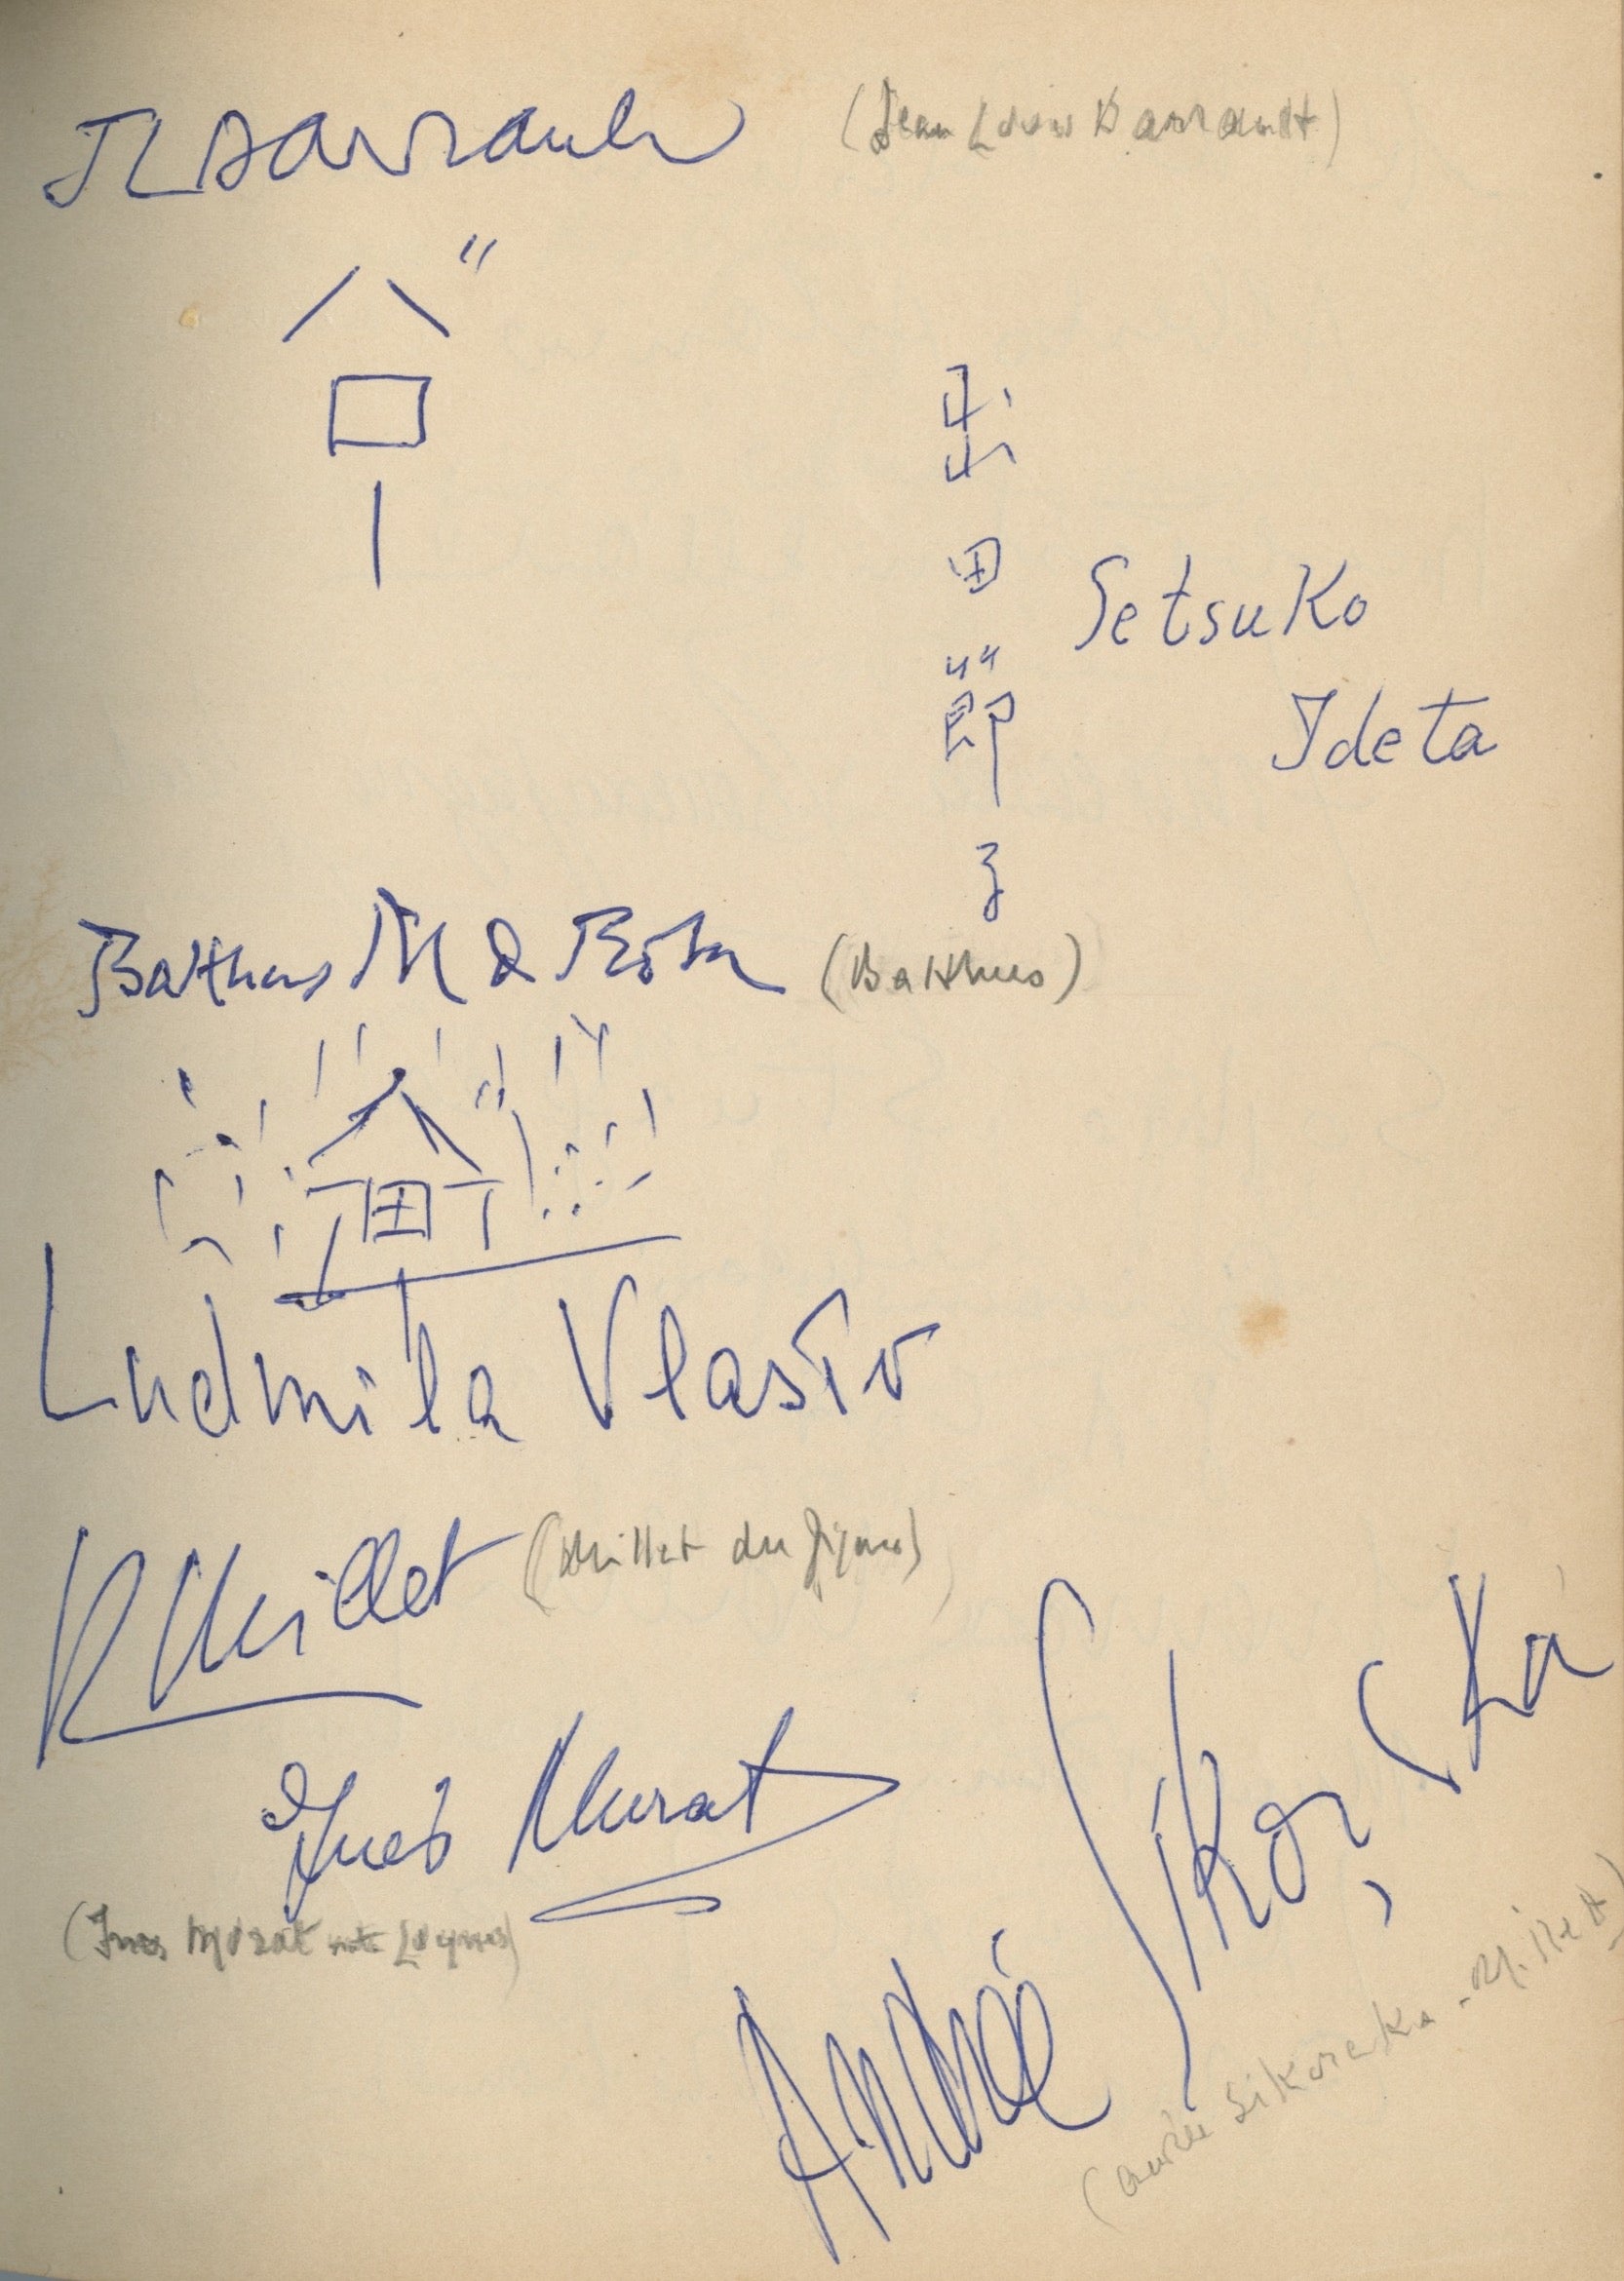 JLBarrault (Jean Louis Barrault)
バロー
出田節子
Setsuko
Ideta
Balthus (Balthus)
Ludmila Vlasto
R Millet (Millet du Figaro)
Inès Murat
(Ines Murat Luynes)
André Sikorska
(André Sikorska - Millet)